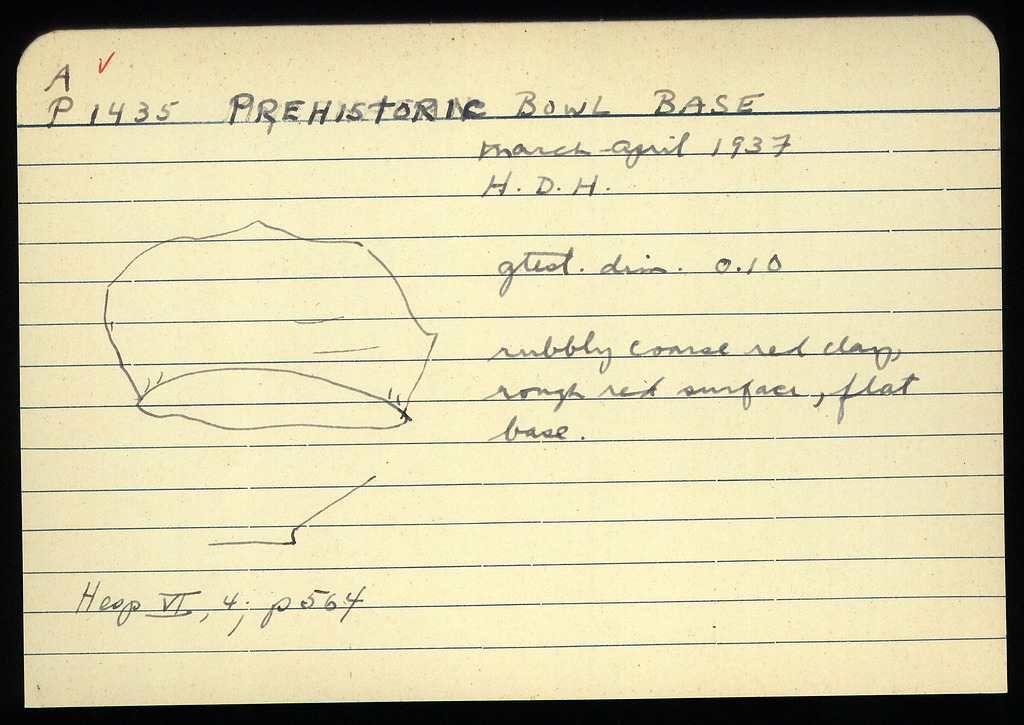 A ✓
P 1435 PREHISTORIC BOWL BASE
March-April 1937
H. D. H.
gtest. dim. 0.10
rubbly coarse red clay,
rough red surface, flat
base.
Hesp VI, 4; p 564